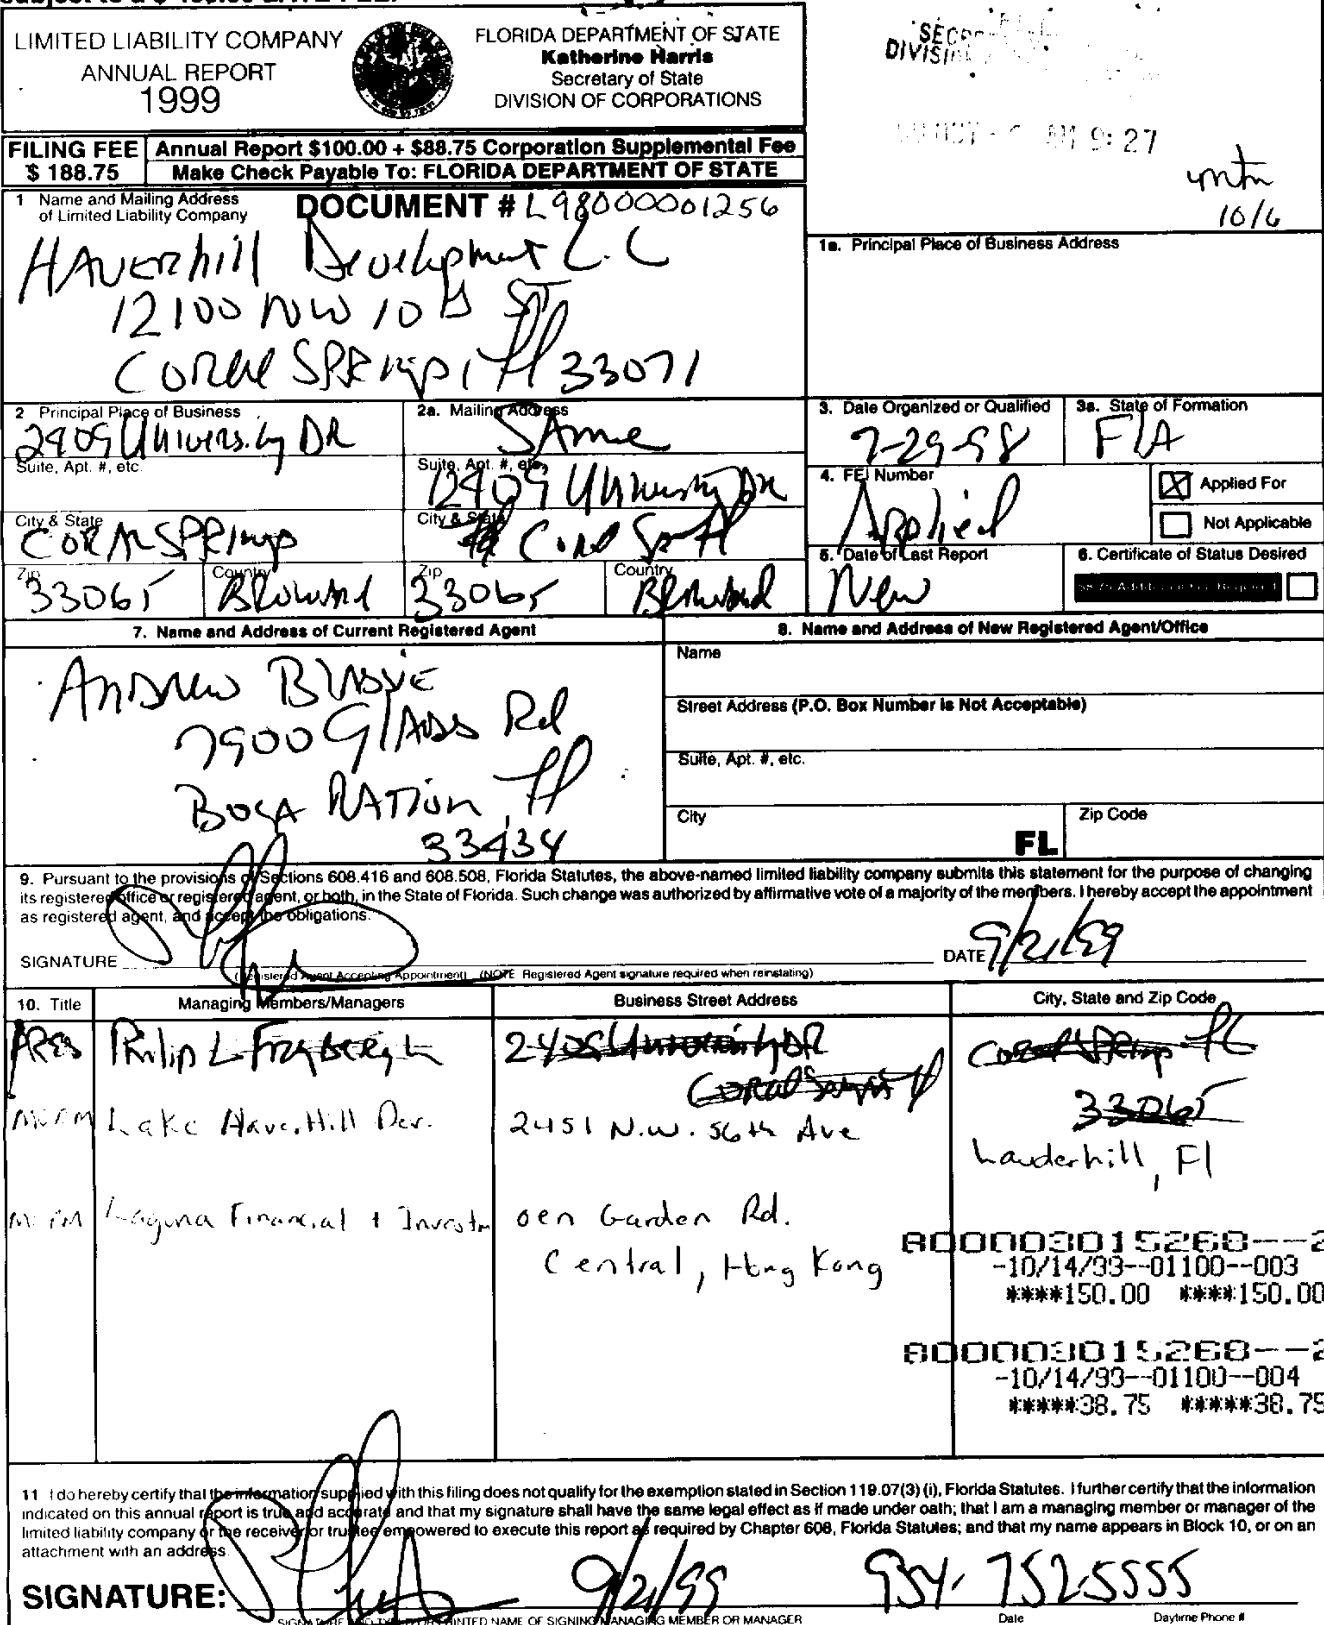 LIMITED LIABILITY COMPANY
ANNUAL REPORT
1999
FLORIDA DEPARTMENT OF STATE
Katherine Harris
Secretary of State
DIVISION OF CORPORATIONS
9:27
10/6
FILING FEE
$ 188.75
Annual Report $100.00 + $88.75 Corporation Supplemental Fee
Make Check Payable To: FLORIDA DEPARTMENT OF STATE
1 Name and Mailing Address
of Limited Liability Company
DOCUMENT # L98000001256
HAVERhill Development L.C
12100 NW 10th ST
CORAL SPRINGS, Fl 33071
1a. Principal Place of Business Address
2 Principal Place of Business
2909 University DR
Suite, Apt. #, etc.
City & State
CORAL SPRINGS
Zip
33065
Country
Broward
2a. Mailing Address
SAme
Suite, Apt. #, etc.
2909 University DR
City & State
Coral Fl
Zip
33065
Country
Broward
3. Date Organized or Qualified
7-29-98
3a. State of Formation
FLA
4. FEI Number
Applied
Applied For
Not Applicable
5. Date of Last Report
New
6. Certificate of Status Desired
7. Name and Address of Current Registered Agent
ANDREW
7900 GLADES Rd
BOCA RATION, Fl
33434
8. Name and Address of New Registered Agent/Office
Name
Street Address (P.O. Box Number is Not Acceptable)
Suite, Apt. #, etc.
City
FL
Zip Code
9. Pursuant to the provisions of Sections 608.416 and 608.508, Florida Statutes, the above-named limited liability company submits this statement for the purpose of changing
its registered office or registered agent, or both, in the State of Florida. Such change was authorized by affirmative vote of a majority of the members. I hereby accept the appointment
as registered agent, and accept the obligations.
SIGNATURE
DATE 9/21/99
(Registered Agent Accepting Appointment) (NOTE Registered Agent signature required when reinstating)
10. Title
Managing Members/Managers
Business Street Address
City, State and Zip Code
PRES Philip L
University DR
Coral Springs Fl
33065
MGRM Lake Haverhill Dev.
2451 N.W. 56th Ave
Lauderhill, Fl
MGRM Laguna Financial + Investm
oen Garden Rd.
Central, Hong Kong
800003015268--2
-10/14/99--01100--003
****150.00 ****150.00
800003015268--2
-10/14/99--01100--004
*****38.75 *****38.75
11 I do hereby certify that the information supplied with this filing does not qualify for the exemption stated in Section 119.07(3) (i), Florida Statutes. I further certify that the information
indicated on this annual report is true and accurate and that my signature shall have the same legal effect as if made under oath; that I am a managing member or manager of the
limited liability company or the receiver or trustee empowered to execute this report as required by Chapter 608, Florida Statutes; and that my name appears in Block 10, or on an
attachment with an address.
SIGNATURE:
9/21/99
954-752-5555
SIGNATURE AND TYPED OR PRINTED NAME OF SIGNING MANAGING MEMBER OR MANAGER
Date
Daytime Phone #